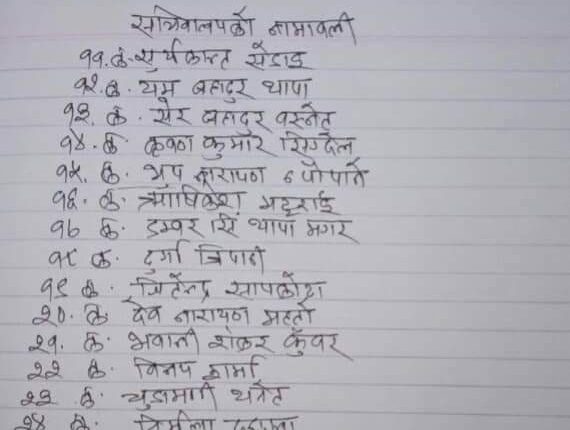 सचिवालयको नामावली
११. क. सुर्यकान्त सेडाइ
१२. क. यम बहादुर थापा
१३. क. सेर बहादुर वस्नेत
१४. क. कृष्ण कुमार सिग्देल
१५. क. भुप नारायण
१६. क. ऋषिकेश भट्टराई
१७ क. डम्वर सिं थापा मगर
१८ क. दुर्गा त्रिपाठी
१९ क. जितेन्द्र सापकोटा
२०. क. देव नारायण महतो
२१. क. भवानी शंकर कुँवर
२२ क. विनय शर्मा
२३ क. चुडामणी
२४ क. निर्मला